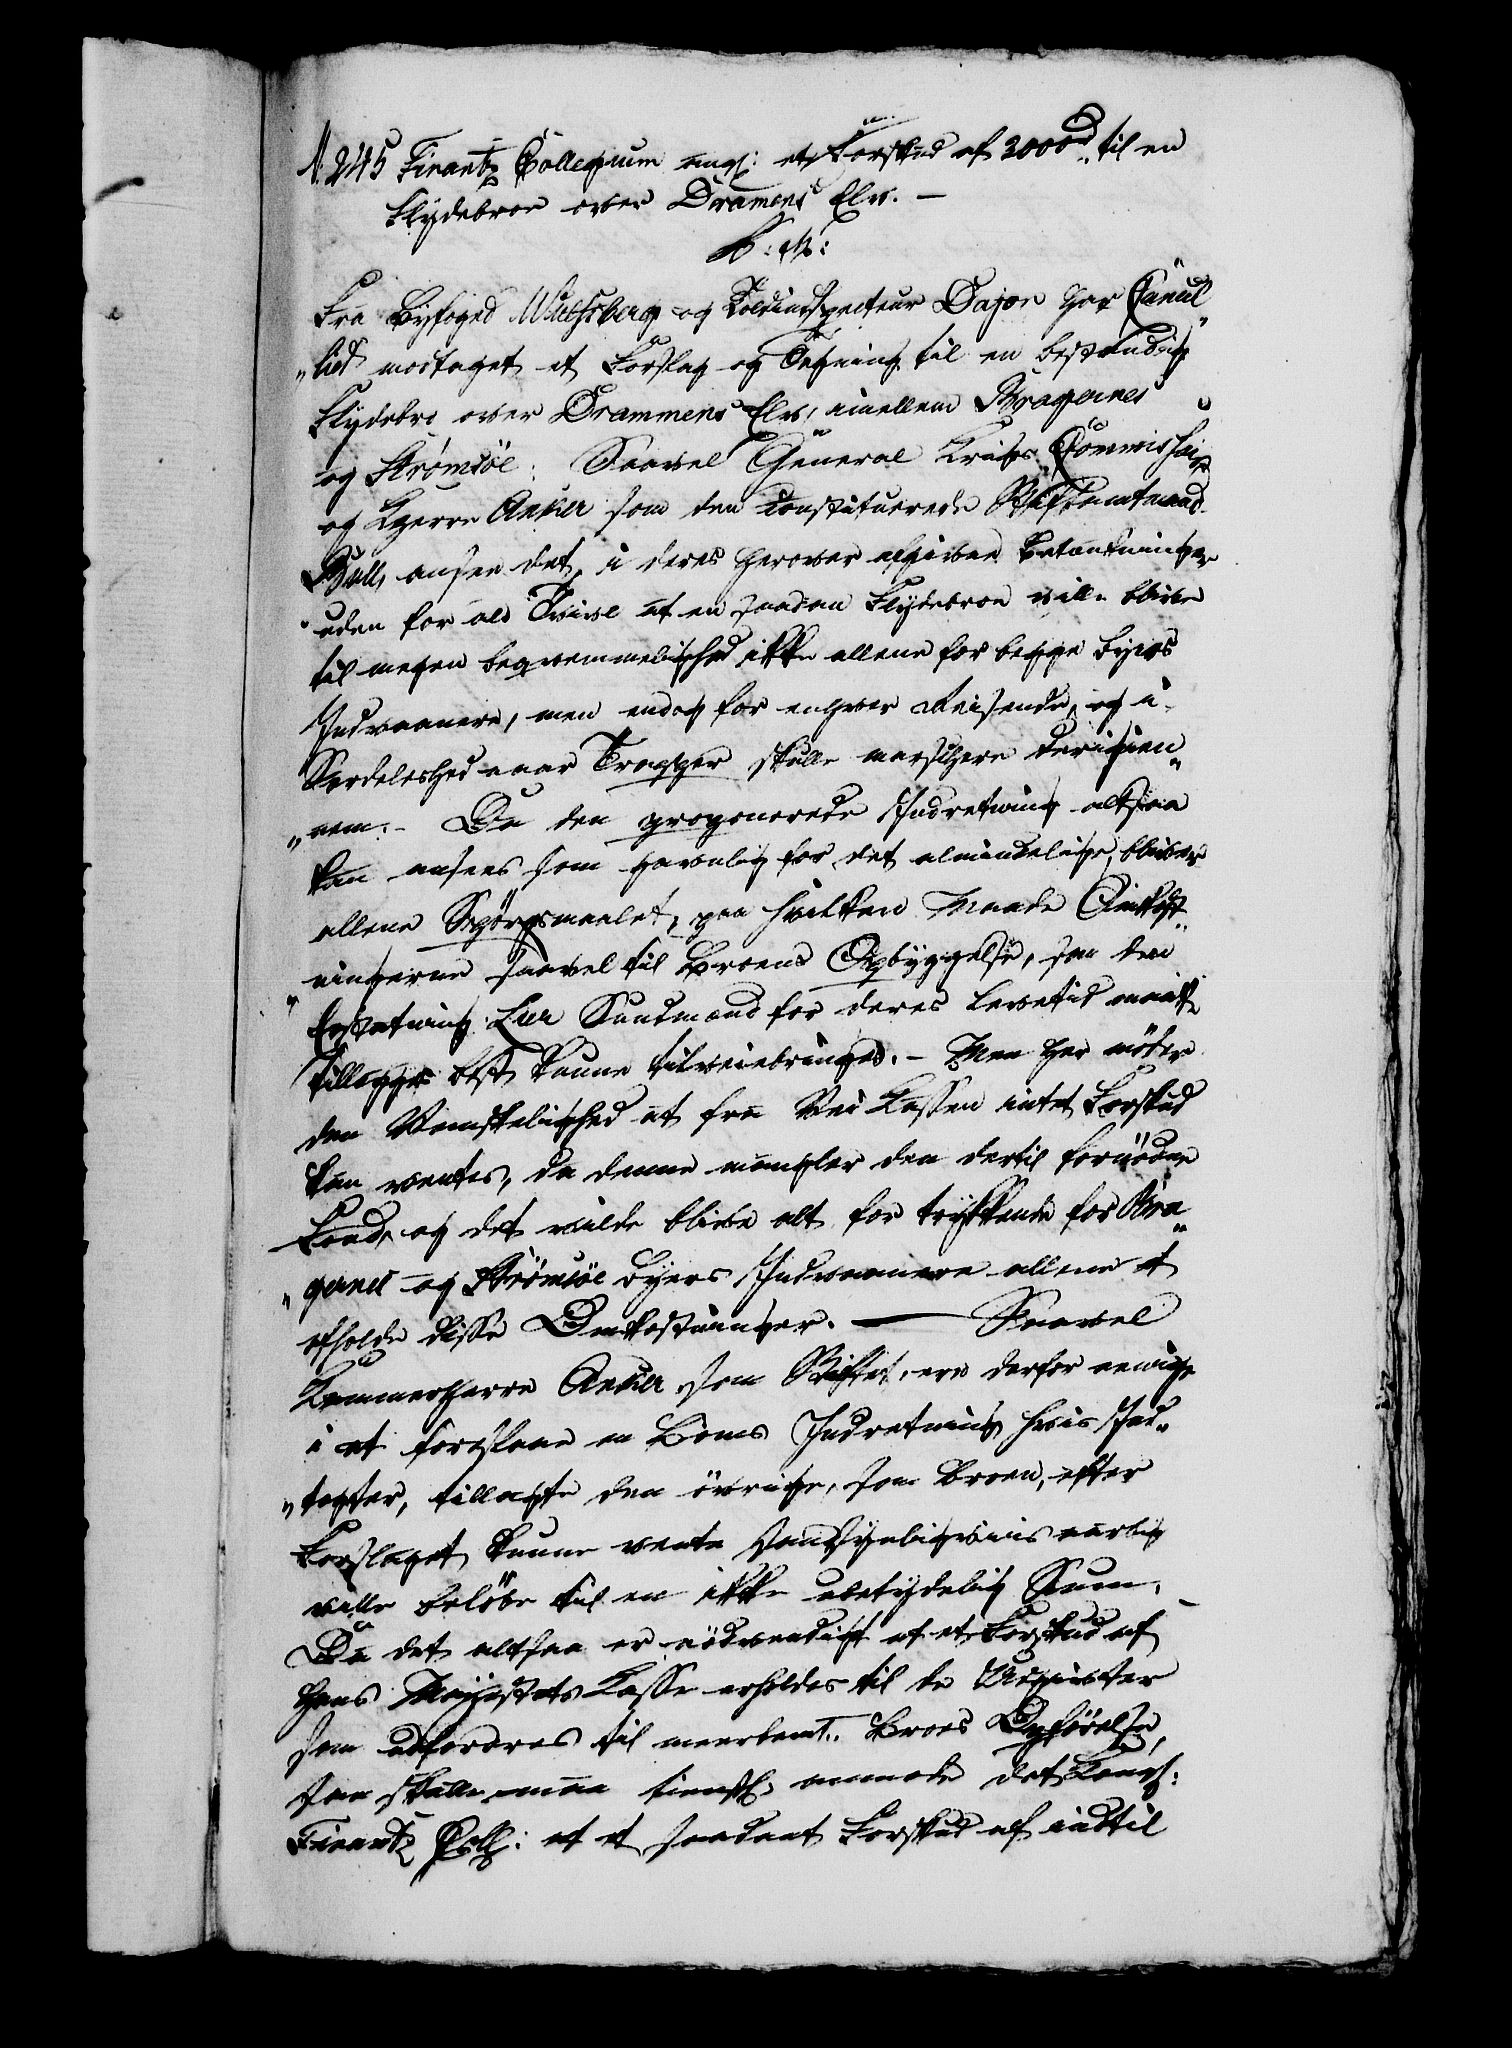 N. 245 Finantz Collegium ang: et Forskud af 3000 rd til en
Flydebroe over Dramens Elv. —
P: M:
Fra Byfoged Wulfsberg og Toldinspecteur Dajon har Cancel„
„liet modtaget et Forslag og Tegning til en bestandig
Flydebro over Drammens Elv, imellem Bragernes
og Strømsöe: Saavel General Krigs Commissair
og Kierre Anker som den constituerede Stiftamtmand
Bull, ansee det, i deres herover afgivne Betænkninger
uden for ald Tvivl at en saadan Flydebroe ville blive
til megen beqvemmelighed ikke allene for begge Byers
Indvaanere, men endog for enhver Reisende, og i
Særdeleshed naar Tropper skulle marschere derigien„
„nem. – Da den proponerede Indretning altsaa
kan ansees som gavnlig for det almindelige, bliver
allene Spörgsmaalet, paa hvilken Maade Omkost„
„ningerne saavel til Broens Opbyggelse, som den
Erstatning Sundmænd for deres Levetid maatte
tillægges best kunne tilveiebringes. – Men her möder
den Vanskelighed at fra Vei Kassen intet Forskud
kan ventes, da denne mangler den dertil fornödne
Fond, og det vilde blive alt for trykkende for Bra„
„gernes og Strömsöe Byers Indvaanere allene at
afholde disse Omkostninger. — Saavel
Kammerherre Anker som Stiftet, ere derfor eenige
i at foreslaae en Boms Indretning hvis Ind„
„tægter, tillagte den övrige, som Broen, efter
Forslaget, kunne vente sandsynligviis aarlig
ville belöbe til en ikke ubetydelig Sum.
Da det altsaa er nödvendigt at et Forskud af
Hans Majestæts Kasse erholdes til de Udgivter
som udfordres til meerbemt. Broes Opförelse,
saa skulle man tienstl. anmode det Kongl:
Finantz Coll: at et saadant Forskud af indtil